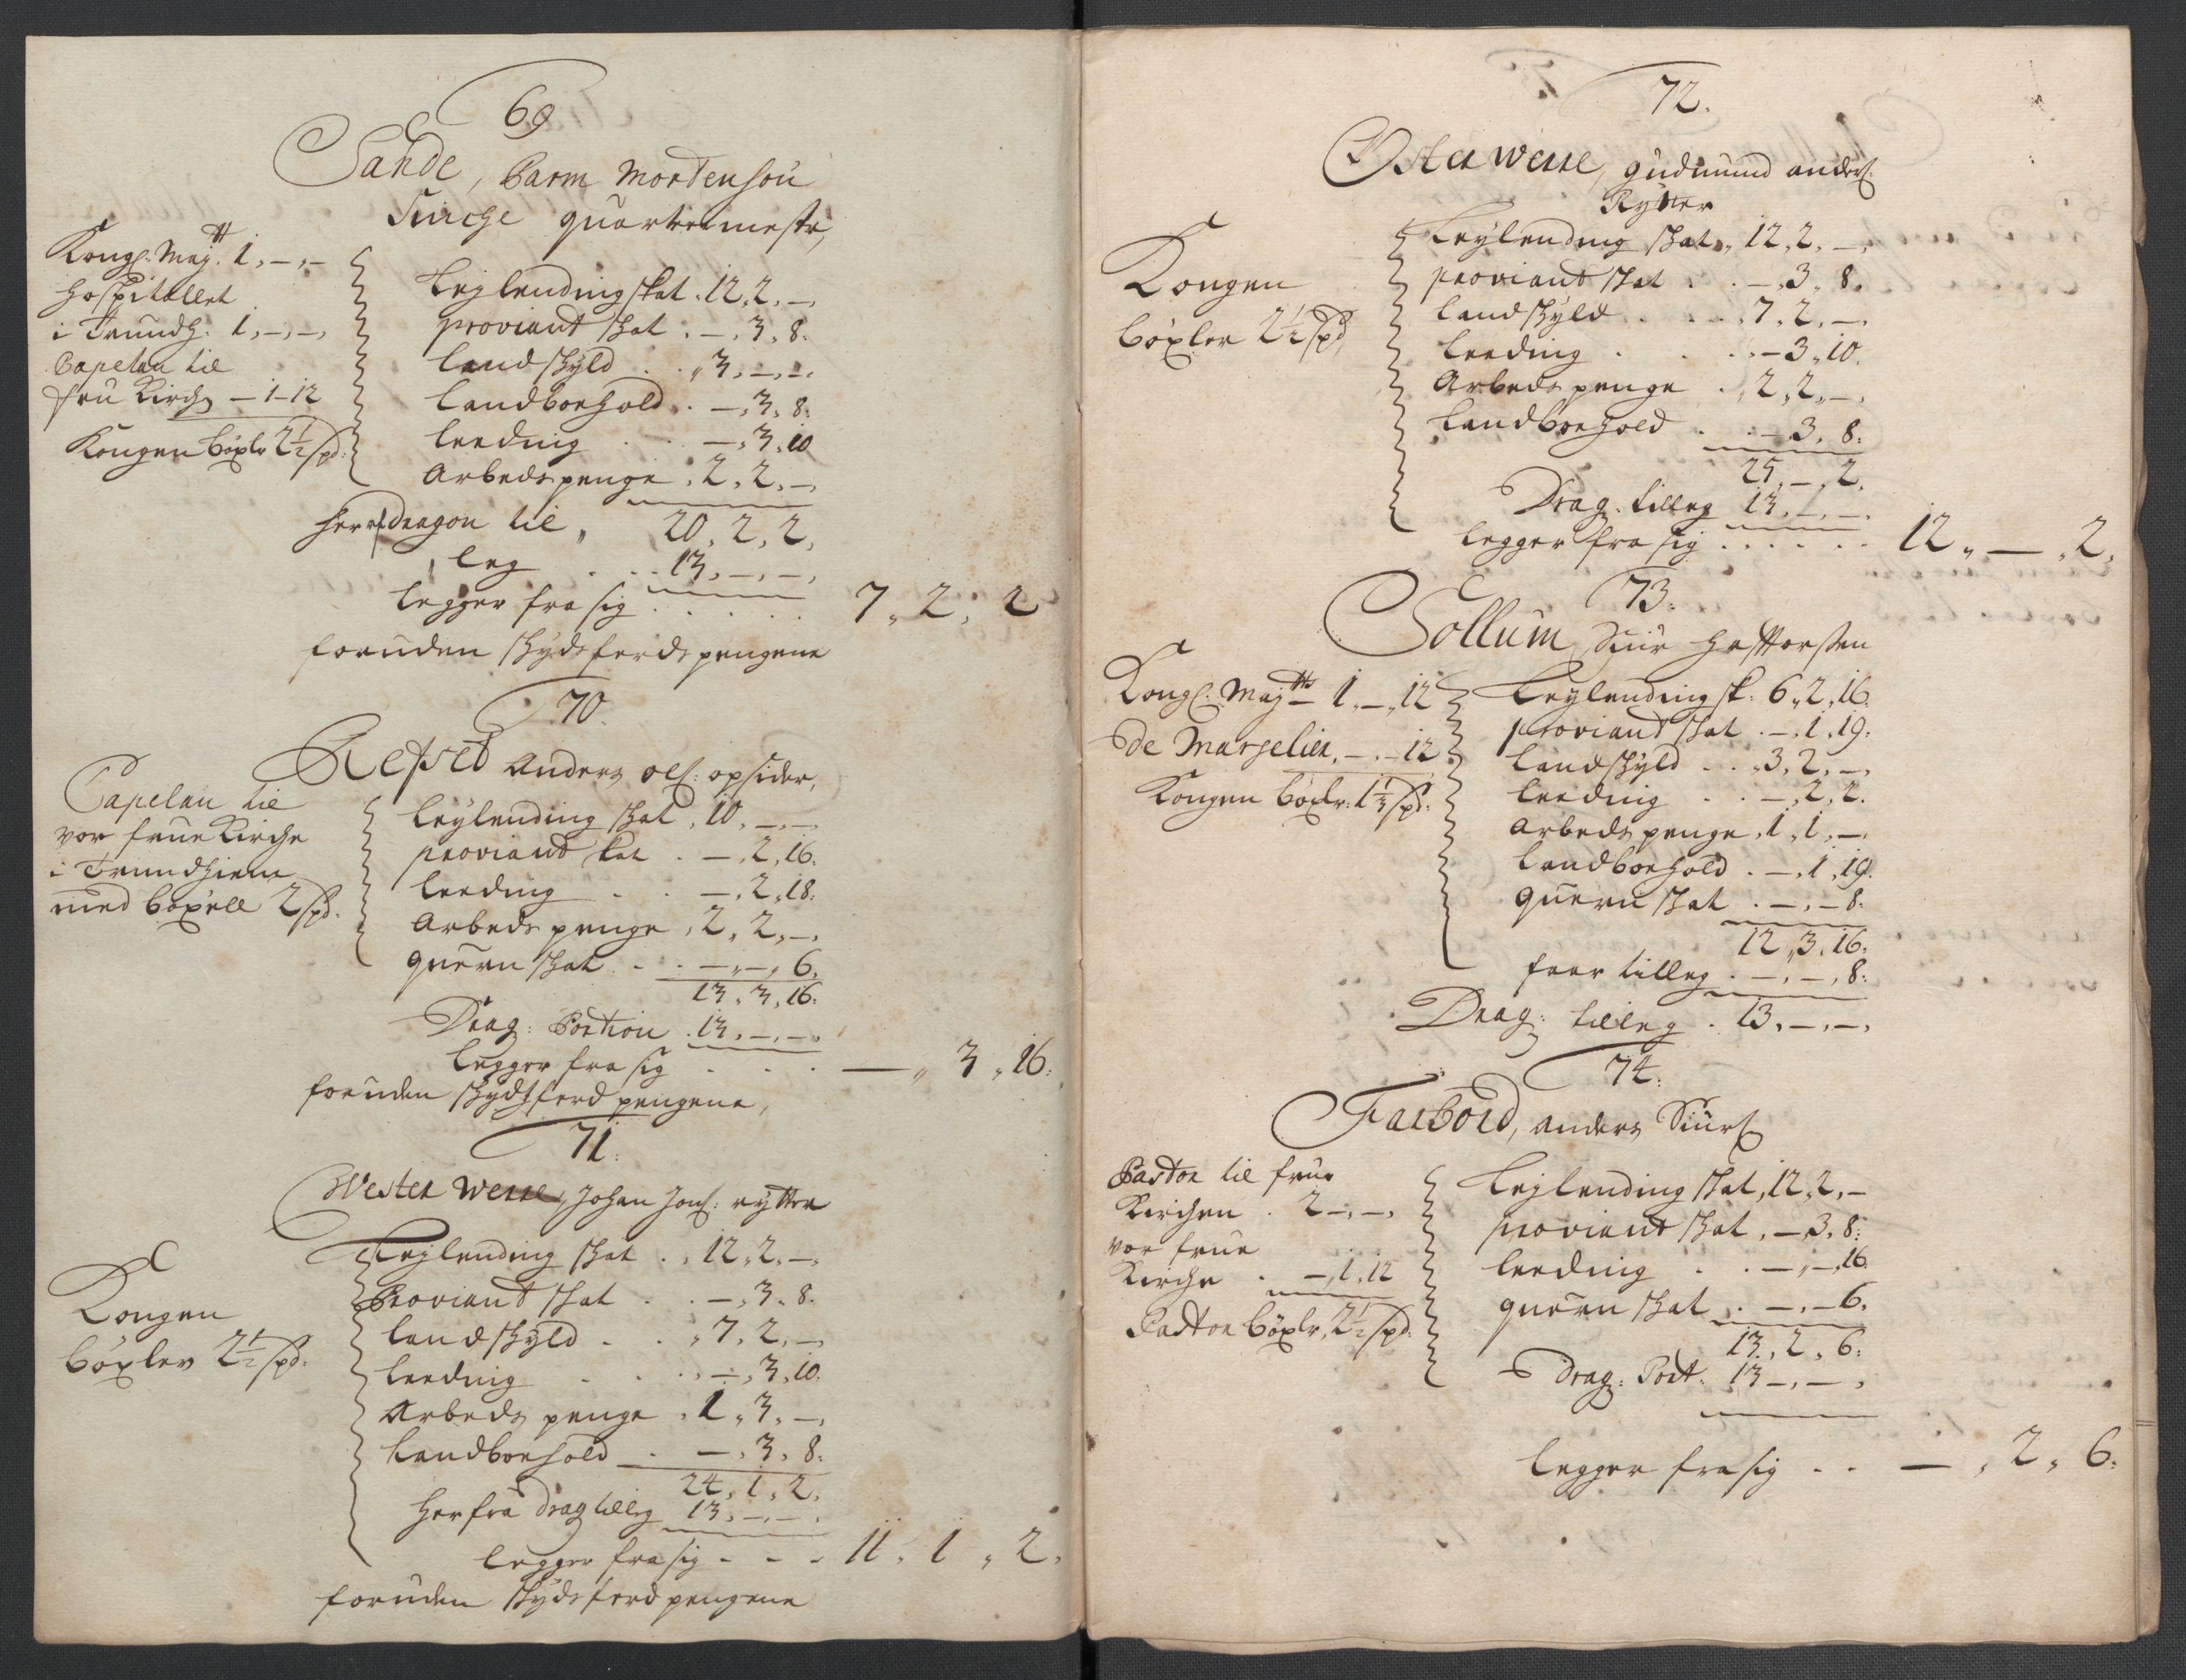 69
Sande, Barm Mordensøn
quartermestr,
Kongl: Maytt 1, –, –
Hospitallet
i Trundh. 1, –, –,
Capelan til
fru Kirch – 1 – 12
Kongen böxlr 2½ spd:
Leylending skat . 12, 2, –,
proviant skat . –, 3, 8.
landskyld . . , 3, –, –.
landborhold . –, 3, 8:
leeding . . –, 3, 10
Arbeds penge , 2, 2, –,
herraf dragon til , 20, 2, 2,
leg . . . 13, –, –,
legger fra sig . . . . . 7, 2, 2
foruden skydsferds pengene
70.
Refset Anders Ols: opsider,
Capelan til
vor frue Kirche
i Trundhiem
med böxell 2 spd.
leylending skat , 10, –, –
proviant skat . –, 2, 16.
leeding . . –, 2, 18.
Arbeds penge , 2, 2, –,
quern skat . . –, –, 6,
13, 3, 16.
Drag: Portion . 13, –, –,
legger fra sig . . . –, 3, 16:
foruden skydtsferd pengene,
71.
Wester Werre, Johan Jons: rytter
Kongen
böxler 2½ spd.
Leylending skat . , 12, 2, –,
Proviant skat . . –, 3, 8.
landskyld . . , 7, 2, –,
leeding . . . –, 3, 10.
Arbeds penge , 1, 3, –,
Landborhold . –, 3, 8:
24, 1, 2,
Herfra drag tilleg 13, –, –,
legger fra sig - - - 11, 1, 2,
foruden skydsferd pengene
72.
Øster Werre, Gudmund anders:
Rytter
Kongen
böxler 2½ spd,
Leylending skat , 12, 2, –,
proviant skat . . –, 3, 8.
land skyld . . . , 7, 2, –,
leeding . . . –, 3, 10.
Arbeds penge . , 2, 2, –,
Landborhold . . – 3, 8:
25, –, 2.
Drag. tilleg 13, –, –.
legger fra sig . . . . . . 12, –, 2,
73.
Sollum Siur
Kongl: Maytts 1, –, 12
De Marselier, –, – 12.
Kongen böxlr: 1⅓ spd:
Leylending sk: 6, 2, 16.
proviant skat . –, 1, 19.
landskyld . . , 3, 2, –,
leeding . . –, 2, 2.
Arbeds penge , 1, 1, –,
landborhold . –, 1, 19.
quern skat . –, – 8:
12, 3, 16:
faar tilleg . –, –, 8:
Drag: tilleg . 13, –, –,
74.
Farbord, Anders Siurs:
Pastor til frue
Kirchen . 2 –, –,
vor frue
Kirche . –, 1, 12
Pastor böxlr, 2½ spd:
Leylending skat , 12, 2, –
proviant skat , – 3, 8:
leeding . . –, – 16
quern skat . –, – 6,
13, 2, 6:
Drag: Port. 13 –, –,
legger fra sig . . –, 2, 6: